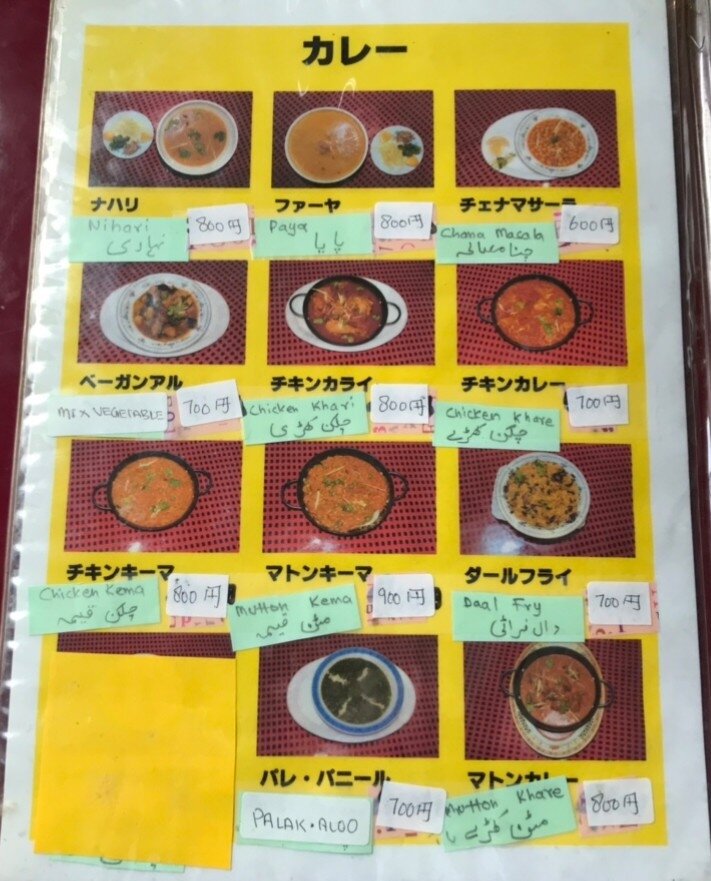 カレー
ナハリ
Nihari
800円
نہاری
ファーヤ
Paya
800円
پایا
チェナマサーラ
Chana Masala
600円
چنا مصالحہ
ベーガンアル
MIX VEGETABLE
700円
チキンカライ
Chicken Khari
800円
چکن کھڑی
チキンカレー
Chicken Khare
700円
چکن کھڑے
チキンキーマ
Chicken Kema
800円
چکن قیمہ
マトンキーマ
Mutton Kema
900円
مٹن قیمہ
ダールフライ
Daal Fry
700円
دال فرائی
パレ・パニール
PALAK・ALOO
700円
マトンカレー
Mutton Khare
800円
مٹن کھڑے